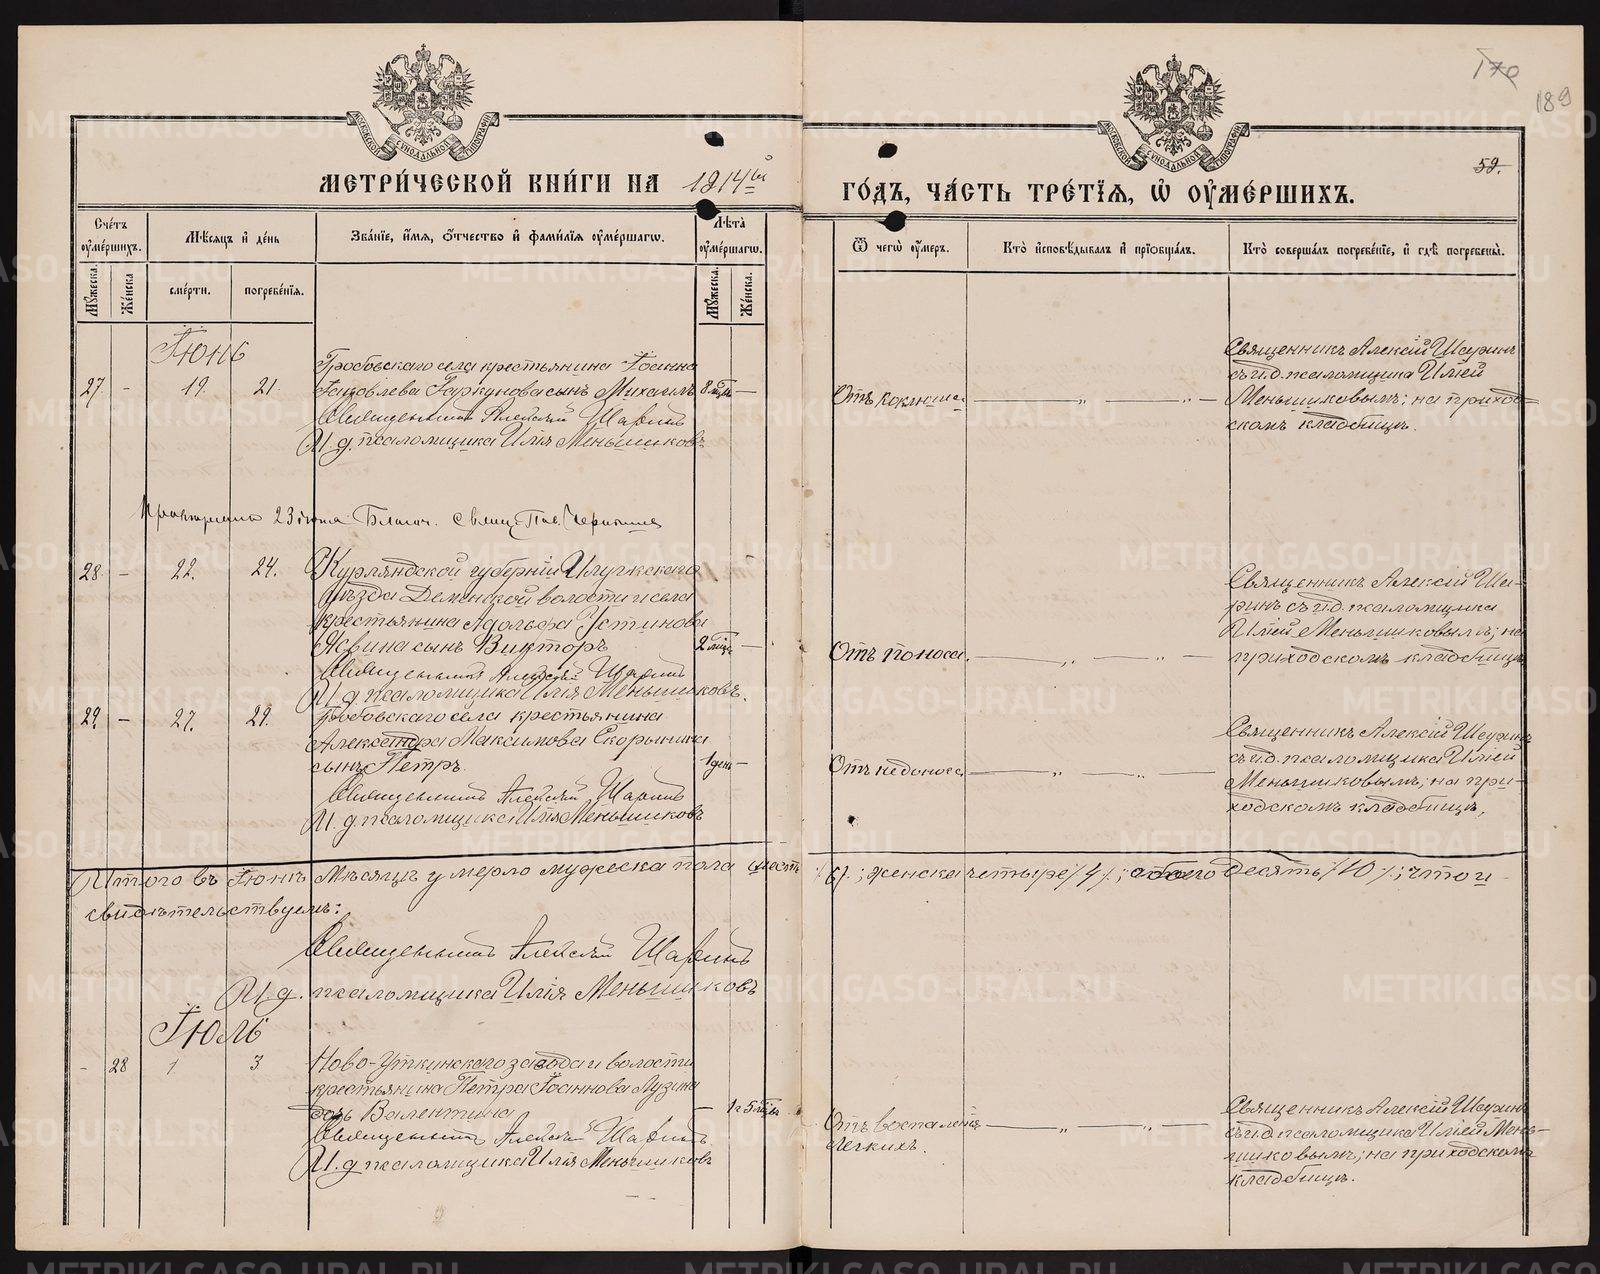 189
59.
МЕТРИ́ЧЕСКОЙ КНИ́ГИ НА 1914 й
ГО́ДЪ, ЧА́СТЬ ТРЕ́ТЇѦ, Ѡ҆ ОУ҆МЕ́РШИХЪ.
Сче́тъ оу҆ме́ршихъ.
Мѣ́сѧцъ и҆ де́нь
Зва́нїе, и҆́мѧ, ѻ҆́тчество и҆ фами́лїѧ оу҆ме́ршагѡ.
Лѣ́та оу҆ме́ршагѡ.
Ѿ чегѡ̀ оу҆́меръ.
Кто̀ и҆сповѣ́дывалъ и҆ прїѡбща́лъ.
Кто̀ соверша́лъ погребе́нїе, и҆ гдѣ̀ погребены̀.
Мꙋ́жеска.
Же́нска
сме́рти.
погребе́нїѧ.
Мꙋ́жеска.
Же́нска.
Іюнь
27. - 19. 21.
Гробовскаго села крестьянина Іоанна
Гаркунова сынъ Михаилъ 8 мѣс. -
Священникъ Алексій Шаринъ
И. д. псаломщика Илія Меньшиковъ
Отъ коклюша
Священникъ Алексій Шаринъ
съ и.д. псаломщика Иліей
Меньшиковымъ; на приход-
скомъ кладбищѣ.
23 іюня Благоч. свящ.
28. - 22. 24.
Курляндской губерніи Иллукскаго
уѣзда Деменской волости и села
крестьянина Адольфа Устинова
сынъ Викторъ 2 мѣс. -
Священникъ Алексій Шаринъ
И. д. псаломщика Илія Меньшиковъ.
Отъ поноса.
Священникъ Алексій Ша-
ринъ съ и.д. псаломщика
Иліей Меньшиковымъ; на
приходскомъ кладбищѣ
29. - 27. 29.
Гробовскаго села крестьянина
Александра Максимова Скорынина
сынъ Петръ. 1 день -
Священникъ Алексій Шаринъ
И. д. псаломщика Илія Меньшиковъ
Отъ недоноса
Священникъ Алексій Шаринъ
съ и.д. псаломщика Иліей
Меньшиковымъ; на при-
ходскомъ кладбищѣ.
Итого въ Іюнѣ мѣсяцѣ умерло мужеска пола шесть /6/.; женска четыре /4/.; обоего десять /10/.; что и
свидѣтельствуемъ:
Священникъ Алексій Шаринъ
И. д. псаломщика Илія Меньшиковъ
Іюль
- 28 1 3
Ново-Уткинскаго завода и волости
крестьянина Петра Іоаннова Музина
дочь Валентина - 1 г. 5 мѣс.
Священникъ Алексій Шаринъ.
И. д. псаломщика Илія Меньшиковъ
Отъ воспаленія
легкихъ.
Священникъ Алексій Шаринъ
съ и.д. псаломщика Иліей Мень-
шиковымъ; на приходскомъ
кладбищѣ.
METRIKI.GASO-URAL.RU